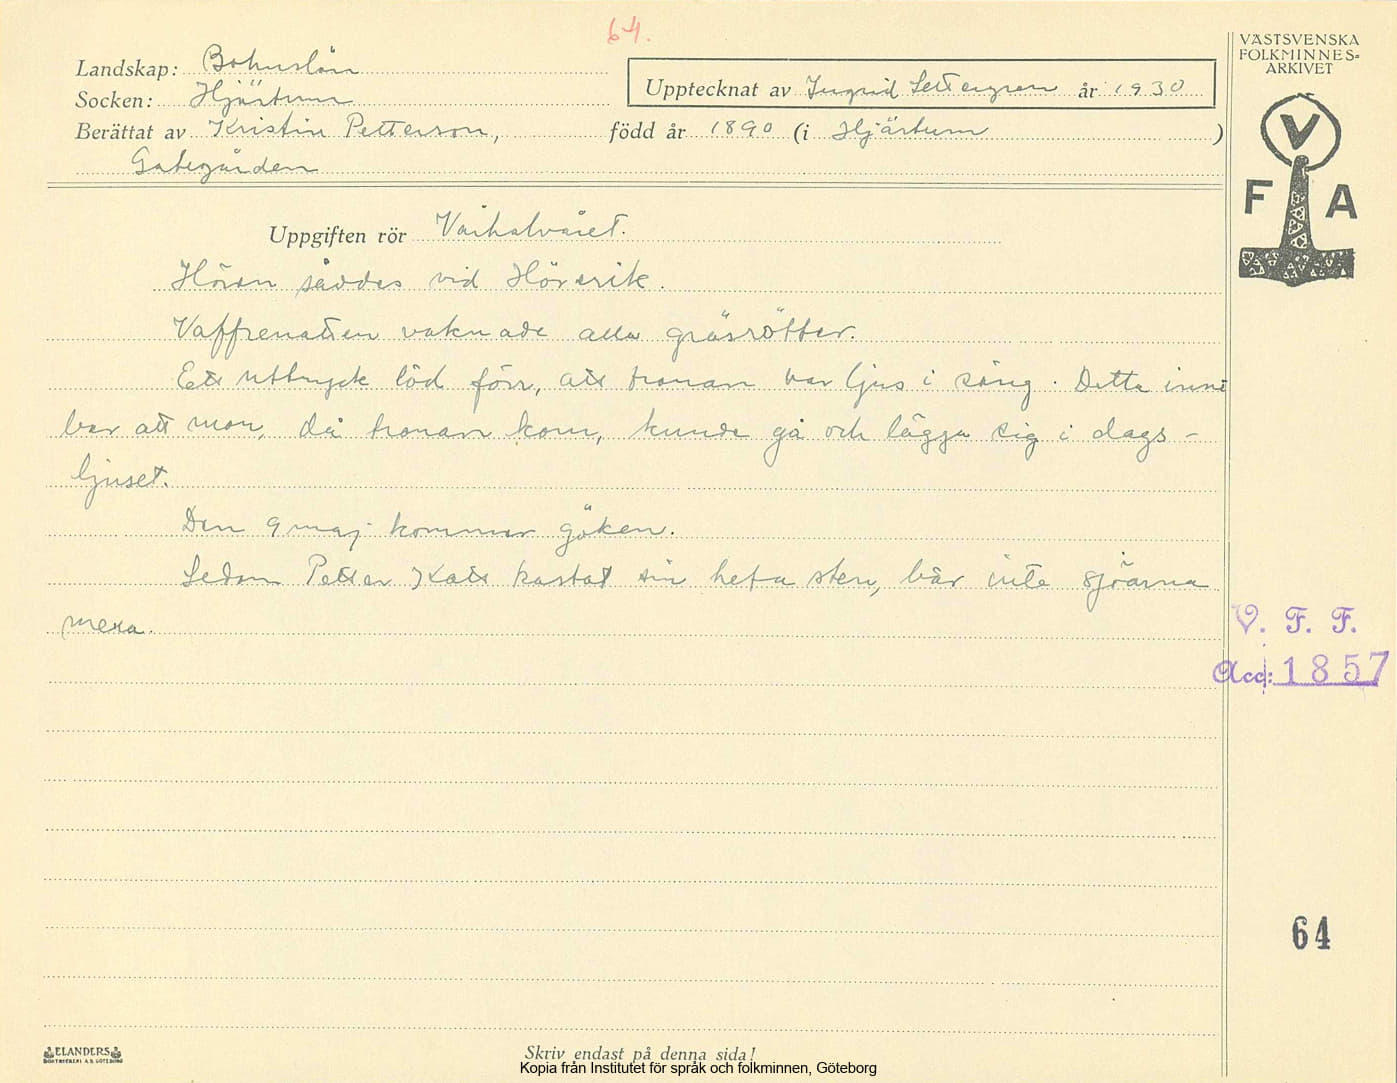 64.
VÄSTSVENSKA
FOLKMINNES-
ARKIVET
Landskap: Bohuslän
Socken: Hjärtum
Upptecknat av Ingrid Settergren år 1930
Berättat av Kristin Petterson, född år 1890 (i Hjärtum )
Gategården
V
F A
Uppgiften rör
Hören såddes vid Hörerik.
Vaffrenatten vaknade alla gräsrötter.
Ett uttryck löd förr, att tranan bar ljus i säng. Detta inne
bar att man, då tranan kom, kunde gå och lägga sig i dags-
ljuset.
Den 9 maj kommer göken.
Sedan Petter Katt kastat sin heta sten, bär inte sjöarna
mera.
V. F. F.
Acc: 1857
64
ELANDERS
BOKTRYCKERI A.B. GÖTEBORG
Skriv endast på denna sida!
Kopia från Institutet för språk och folkminnen, Göteborg